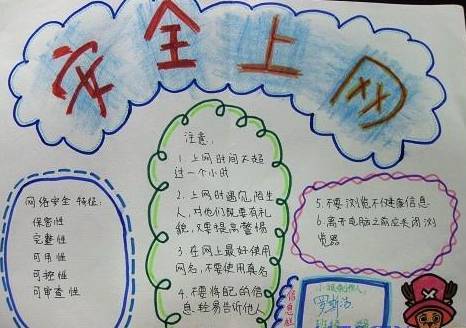 安全上网
网络安全 特征:
保密性
完整性
可用性
可控性
可审查性
注意:
1. 上网时间不超
过一个小时
2. 上网时遇见陌生
人,对他们既要有礼
貌,又要提高警惕
3. 在网上最好使用
网名,不要使用真名
4. 不要将自己的信
息轻易告诉他人
5. 不要浏览不健康信息
6. 离开电脑之前应关闭浏
览器
信息
小报制作人: